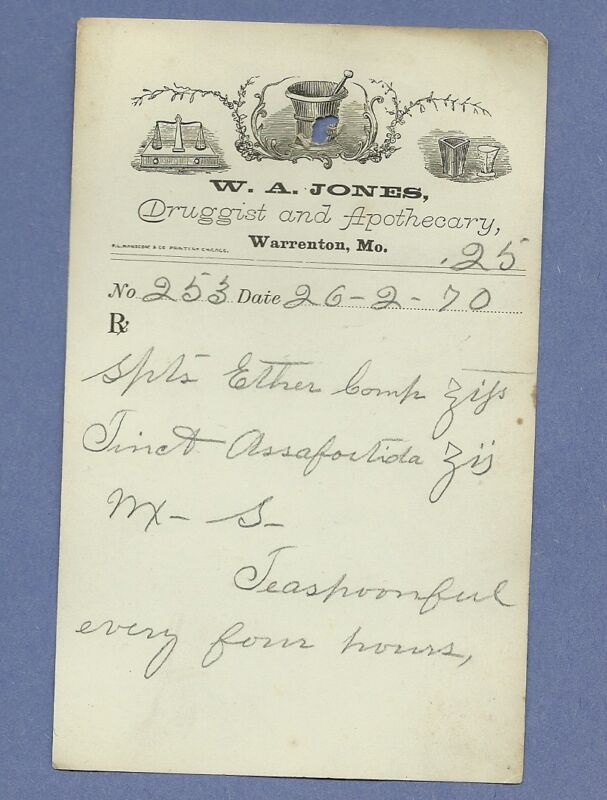 W. A. JONES,
Druggist and Apothecary,
Warrenton, Mo.
.25
No 253 Date 26-2-70
℞
Spts Ether Comp ʒijss
Tinct Assafoetida ʒij
Mx - S-
Teaspoonful
every four hours,